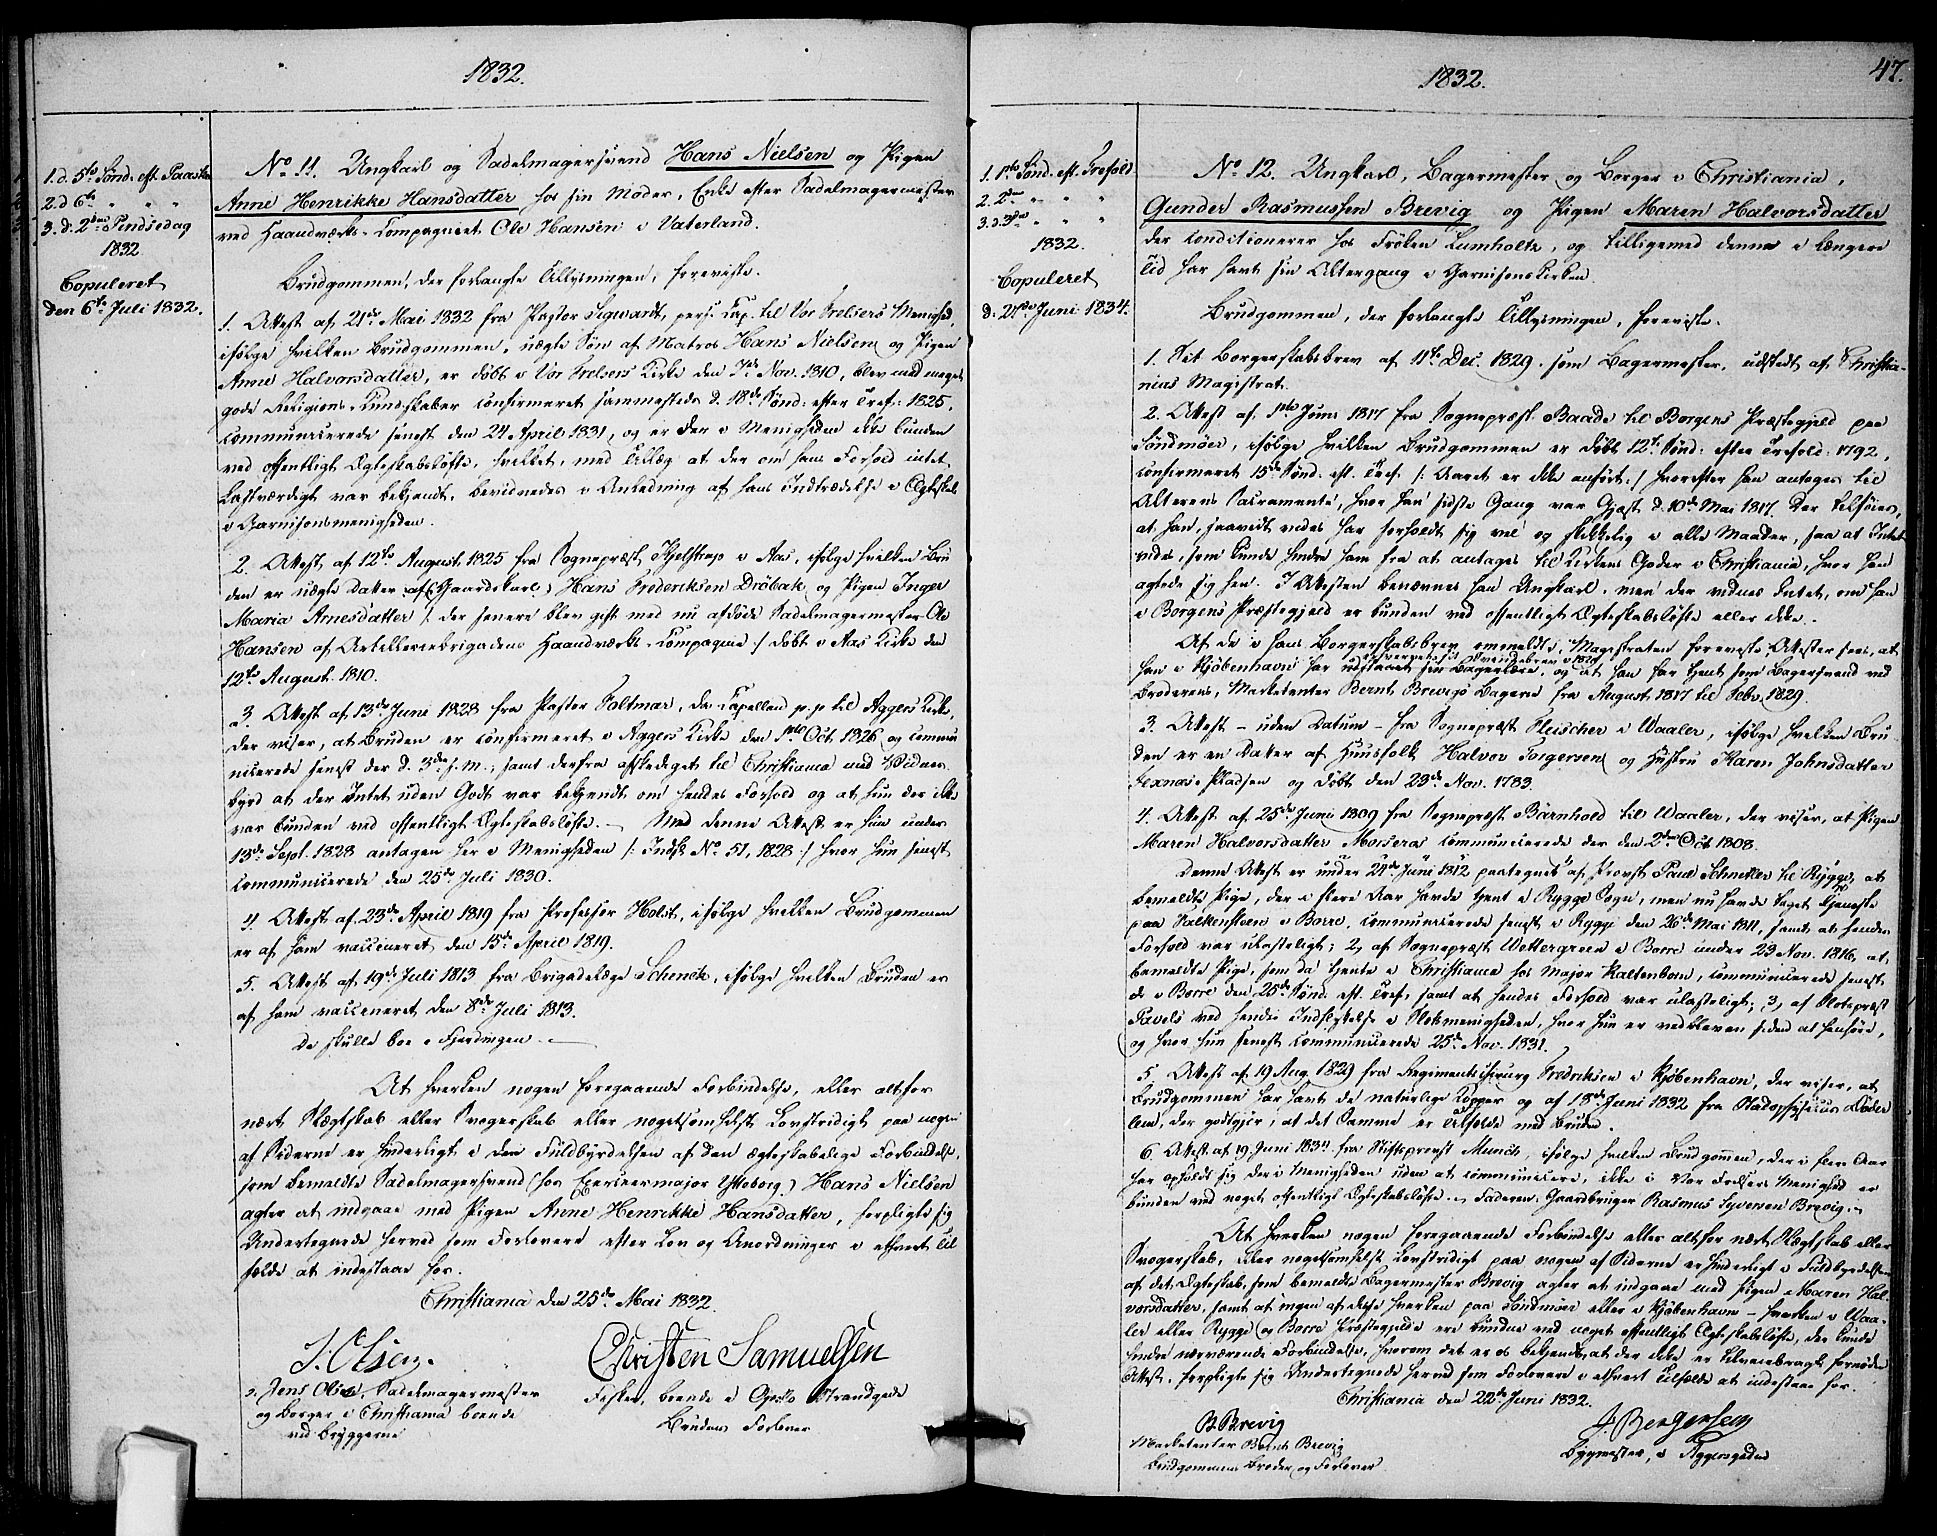 1832.
1. d. 5te Sønd. eft. Paaske
2. d 6te " " "
3. d. 2den Pindsedag
1832
Copuleret
den 6te Juli 1832.
No 11. Ungkarl og Sadelmagersvend Hans Nielsen og Pigen
Anne Henrikke Hansdatter hos sin Moder, Enke efter Sadelmagermester
ved Haandværks-Compagniet Ole Hansen i Vaterland.
Brudgommen, der forlangte Tillysningen, foreviste.
1. Attest af 21de Mai 1832 fra Pastor Sigwardt, pers: Cap. til Vor Frelsers Menighed,
ifølge hvilken Brudgommen, uægte Søn af Matros Hans Nielsen og Pigen
Anne Halvorsdatter, er døbt i Vor Frelsers Kirke den 7de Nov. 1810, blev med meget
gode Religions-Kundskaber confirmeret sammesteds d. 18de Sønd: efter Tref: 1825,
communicerede senest den 24 April 1831, og er der i Menigheden ikke bunden
ved offentligt Ægteskabsløfte, hvilket, med Tillæg at der om hans Forhold intet
Lastværdigt var bekjendt, bevidnedes i Anledning af hans Indtrædelse i Ægteskab
i Garnisonsmenigheden.
2. Attest af 12te August 1825 fra Sognepræst Kjelstrup i Aas, ifølge hvilken Bru
den er uægte Datter af (Gaardskarl) Hans Frederiksen Drøbak og Pigen Inger
Maria Arnesdatter /: der senere blev gift med nu afdøde Sadelmagermester Ole
Hansen af Artilleriebrigadens Haandværks-Compagnie :/ døbt i Aas Kirke den
12te August 1810.
3. Attest af 13de Juni 1828 fra Pastor Foltmar, da Capelland p.p. til Aggers Kirke,
der viser, at Bruden er confirmeret i Aggers Kirke den 1ste Oct. 1826 og commu
nicerede senest der d. 3die s. M., samt derfra afskediget til Christiania med Vidnes
byrd at der Intet uden Godt var bekjendt om hendes Forhold og at hun der ikke
var bunden ved offentligt Ægteskabsløfte. — Med denne Attest er hun under
13de Sept. 1828 antagen her i Menigheden /: Indsk. No 51, 1828 :/ hvor hun senest
communicerede den 25de Juli 1830.
4. Attest af 23de April 1819 fra Professor Holst, ifølge hvilken Brudgommen
er af ham vaccineret den 15de April 1819.
5. Attest af 19de Juli 1813 fra Brigadelæge Schenck, ifølge hvilken Bruden er
af ham vaccineret den 8de Juli 1813.
De skulle boe i Fjerdingen. —
At hverken nogen foregaaende Forbindelse, eller altfor
nært Slægtskab eller Svogerskab eller nogetsomhelst Lovstridigt paa nogen
af Siderne er hinderligt i den Fuldbyrdelsen af den ægteskabelige Forbindelse,
som bemeldte Sadelmagersvend (hos Exerceermajor Ytteborg) Hans Nielsen
agter at indgaae med Pigen Anne Henrikke Hansdatter, forpligte sig
Undertegnede herved som Forlovere efter Lov og Anordninger i ethvert Til
fælde at indestaae for.
Christiania den 25de Mai 1832.
J. Olsen.
Christen Samuelsen
Jens Olsen, Sadelmagermester
og Borger i Christiania boende
ved Bryggerne
Fisker, boende i Opslo Strandgade
Brudens Forlover
47.
1832.
1. 1ste Sønd. eft. Trefold.
2. 2den " " "
3. d. 3die " " "
1832.
Copuleret
d. 21de Juni 1834.
No 12. Ungkarl, Bagermester og Borger i Christiania,
Gunder Rasmussen Brevig og Pigen Maren Halvorsdatter
der conditionerer hos Frøken Lumholtz, og tilligemed denne i længere
Tid har havt sin Altergang i Garnisonskirken.
Brudgommen, der forlangte Tillysningen, foreviste.
1. Sit Borgerskabsbrev af 11te Dec. 1829 som Bagermester, udstedt af Christia-
nias Magistrat.
2. Attest af 1ste Juni 1817 fra Sognepræst Baade til Borgens Præstegjeld paa
Søndmøer, ifølge hvilken Brudgommen er døbt 12te Sønd: efter Trefold: 1792,
confirmeret 15de Sønd. eft. Tref. /: Aaret er ikke anført :/ hvorefter han antages til
Alterens Sacramente, hvor han sidste Gang var Gjæst d. 10de Mai 1817. Der tilføies,
at han, saavidt vides har forholdt sig vel og skikkelig i alle Maader, saa at Intet
vides, som kunde hindre ham fra at antages til Kirkens Goder i Christiania, hvor han
agtede sig hen. I Attesten benævnes han Ungkarl, men der vidnes Intet, om han
i Borgens Præstegjeld er bunden ved offentligt Ægteskabsløfte eller ikke.
Af de i hans Borgerskabsbrev ommeldte, Magistraten foreviste, Attester sees, at
han i Kjøbenhavn har udstaaet sin Bagerlære, og at han har tjent som Bagersvend ved
Broderens, Marketenter Bernt Brevigs Bageri fra August 1817 til Febr. 1829.
3. Attest – uden Datum – fra Sognepræst Fleischer i Waaler, ifølge hvilken Bru
den er en Datter af Huusfolk Halvor Torgersen og Hustru Karen Johnsdatter
Pladsen og døbt den 23de Nov. 1783.
4. Attest af 25de Juni 1809 fra Sognepræst Barnhold til Waaler, der viser, at Pigen
Maren Halvorsdatter Morseras communicerede der den 2den Oct 1808.
Denne Attest er under 21de Juni 1812 paategnet af Provst Paul Schnitler til Rygge, at
bemeldte Pige, der i flere Aar havde tjent i Rygge Sogn, men nu havde taget Tjeneste
paa Falkensteen i Borre, communicerede senest i Rygge den 26de Mai 1811, samt at hendes
Forhold var ulasteligt; 2, af Sognepræst Wettergreen i Borre under 23 Nov. 1816, at
bemeldte Pige, som da tjente i Christiania hos Major Kaltenborn, communicerede senest
i Borre den 25de Sønd. eft. Tref. samt at hendes Forhold var ulasteligt; 3, af Slotspræst
Pavels ved hendes Indskrivelse i Slotsmenigheden, hvor hun er vedbleven siden at henhøre,
og hvor hun senest communicerede 25de Nov. 1831.
5. Attest af 19 Aug. 1829 fra Regimentschirurg Fredriksen i Kjøbenhavn, der viser, at
Brudgommen har havt de naturlige Kopper og af 13de Juni 1832 fra Stadsphysicus
der godtgjør, at det Samme er Tilfælde med Bruden.
6. Attest af 19 Juni 1834 fra Stiftsprovst Munch, ifølge hvilken Brudgommen, der i flere Aar
har opholdt sig der i Menigheden uden at communicere, ikke i Vor Frelsers Menighed er
bunden ved noget offentligt Ægteskabsløfte. – Faderen: Gaardbruger Rasmus Syversen Brevig. –
At hverken nogen foregaaende Forbindelse eller altfor nært Slægtskab eller
Svogerskab, eller nogetsomhelst Lovstridigt paa nogen af Siderne er hinderligt i Fuldbyrdelsen
af det Ægteskab, som bemeldte Bagermester Brevig agter at indgaae med Pigen Maren Hal-
vorsdatter, samt at ingen af disse hverken paa Søndmøer eller i Kjøbenhavn – hverken i Waa-
ler eller Rygge og Borre Præstegjelde ere bundne ved noget offentligt Ægteskabsløfte, der kunde
hindre nærværende Forbindelse, hvorom det er os bekjendt, at der ikke er tilveiebragt fornøden
Attest, forpligte sig Undertegnede herved som Forlovere i ethvert Tilfælde at indestaae for.
Christiania den 22de Juni 1832.
B Brevig
J. Bergersen
Marketenter Bernt Brevig
Brudgommens Broder og Forlover
Bygmester, i Aggersgaden